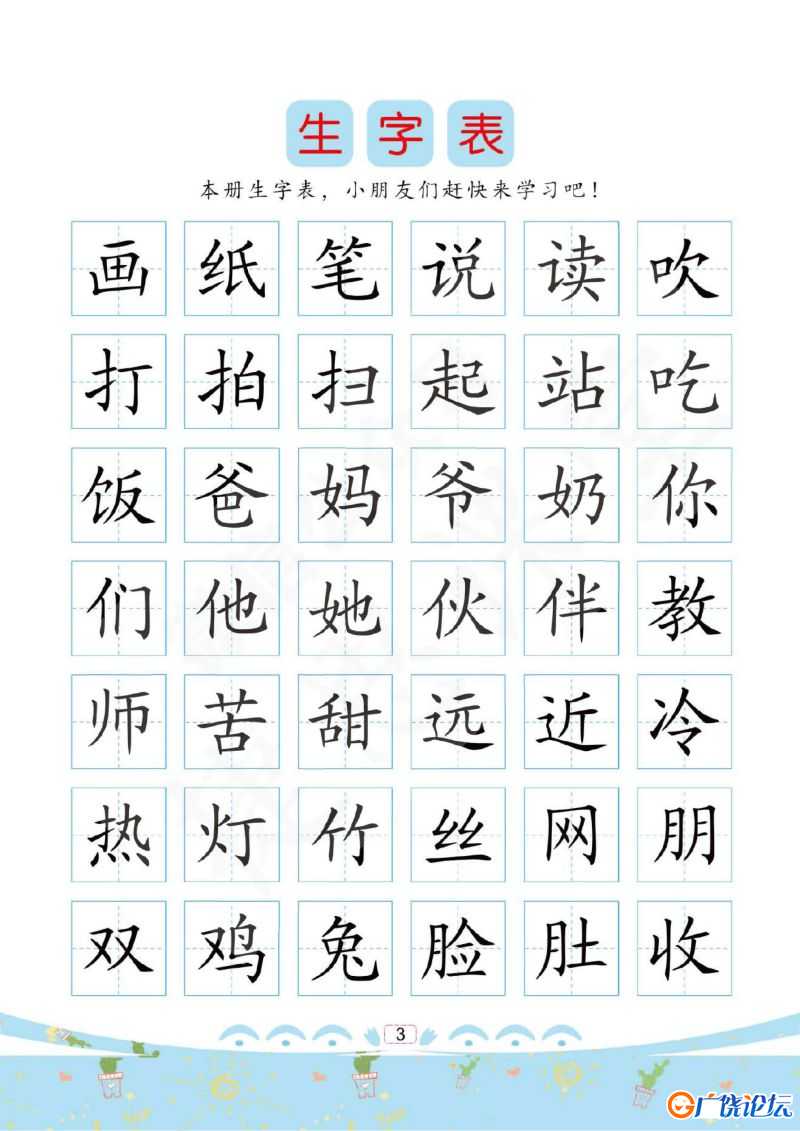 生字表
本册生字表，小朋友们赶快来学习吧！
画 纸 笔 说 读 吹
打 拍 扫 起 站 吃
饭 爸 妈 爷 奶 你
们 他 她 伙 伴 教
师 苦 甜 远 近 冷
热 灯 竹 丝 网 朋
双 鸡 兔 脸 肚 收
3
广饶论坛